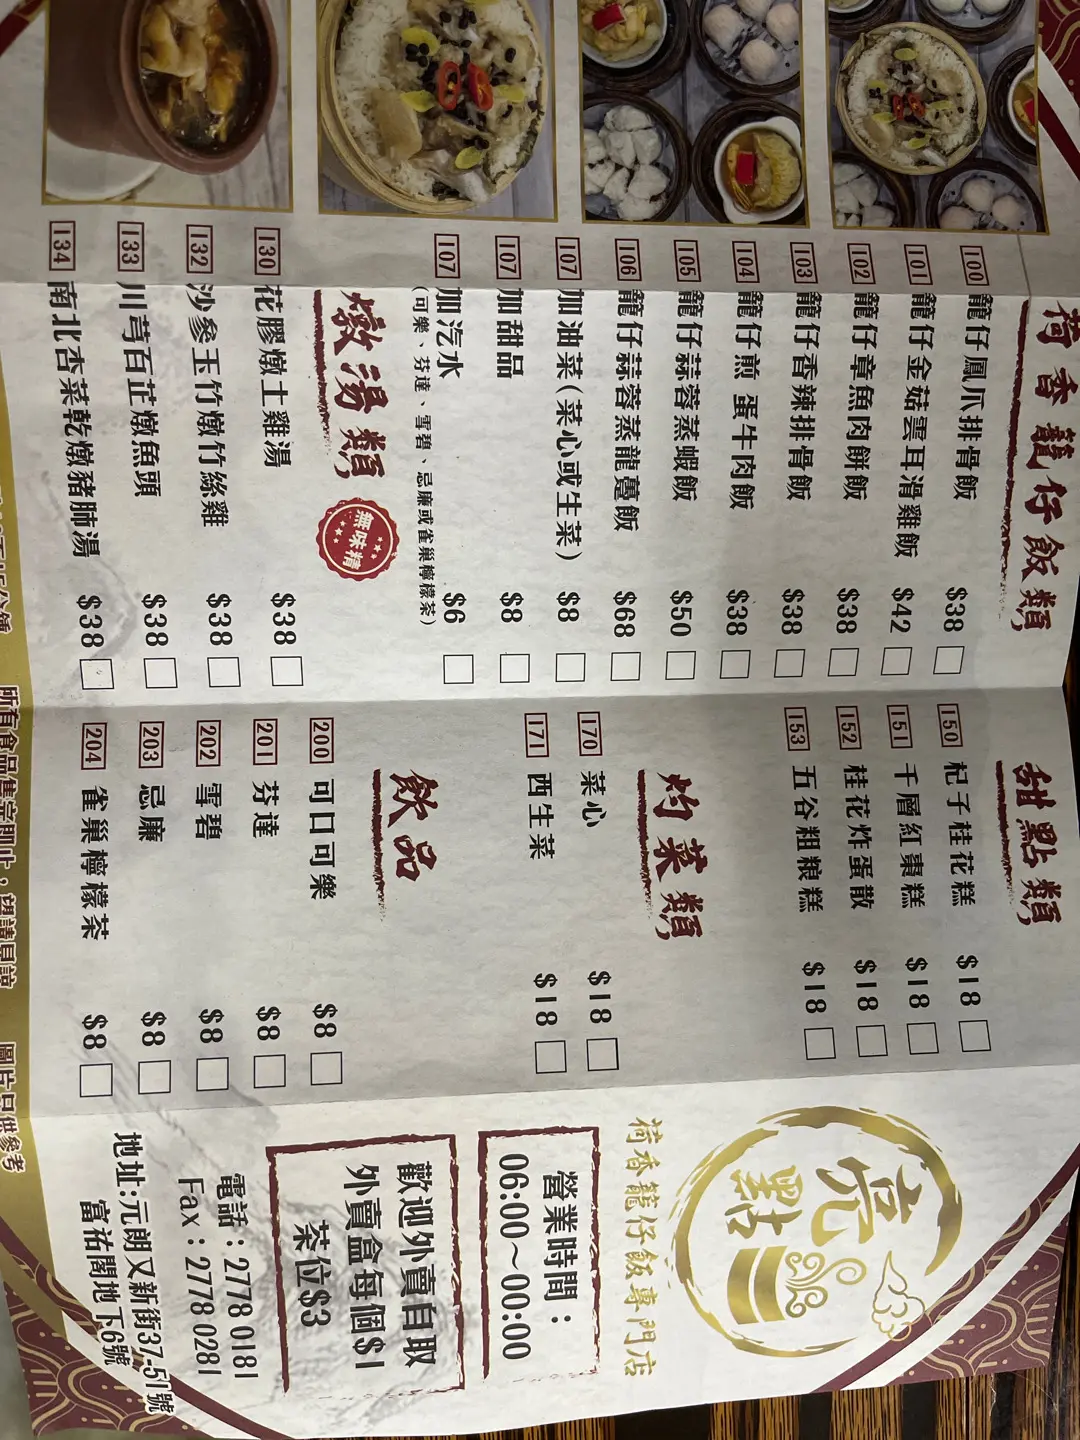 荷香籠仔飯類
100 籠仔鳳爪排骨飯 $38
101 籠仔金菇雲耳滑雞飯 $42
102 籠仔章魚肉餅飯 $38
103 籠仔香辣排骨飯 $38
104 籠仔煎蛋牛肉飯 $38
105 籠仔蒜蓉蒸蝦飯 $50
106 籠仔蒜蓉蒸龍躉飯 $68
107 加油菜(菜心或生菜) $8
107 加甜品 $8
107 加汽水 $6
(可樂、芬達、雪碧、忌廉或雀巢檸檬茶)
燉湯類
無味精
130 花膠燉土雞湯 $38
132 沙參玉竹燉竹絲雞 $38
133 川芎百芷燉魚頭 $38
134 南北杏菜乾燉豬肺湯 $38
甜點類
150 杞子桂花糕 $18
151 千層紅棗糕 $18
152 桂花炸蛋散 $18
153 五谷粗粮糕 $18
灼菜類
170 菜心 $18
171 西生菜 $18
飲品
200 可口可樂 $8
201 芬達 $8
202 雪碧 $8
203 忌廉 $8
204 雀巢檸檬茶 $8
亮點
荷香籠仔飯專門店
營業時間：
06:00~00:00
歡迎外賣自取
外賣盒每個$1
茶位$3
電話：2778 0181
Fax：2778 0281
地址:元朗又新街37-51號
富祐閣地下6號
所有食品售完即止，望請見諒
圖片只供參考